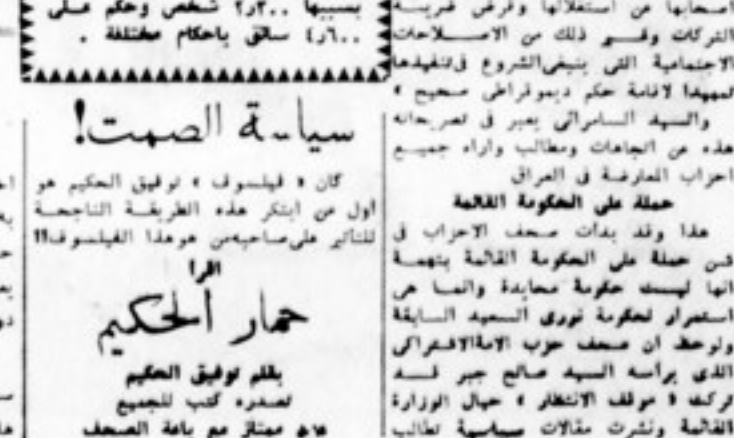 أصحابها من استغلالها وفرض ضريبة
التركات وغير ذلك من الاصلاحات
الاجتماعية التي ينبغي الشروع في تنفيذها
تمهيدا لاقامة حكم ديموقراطي صحيح »
والسيد السامرائي يعبر في تصريحاته
هذه عن اتجاهات ومطالب واراء جميع
احزاب المعارضة في العراق
حملة على الحكومة القائمة
هذا وقد بدأت صحف الاحزاب في
شن حملة على الحكومة القائمة بتهمة
انها ليست حكومة محايدة وانما هي
استمرار لحكومة نوري السعيد السابقة
ولوحظ ان صحف حزب الامة الاشتراكي
الذي يرأسه السيد صالح جبر قد
تركت « موقف الانتظار » حيال الوزارة
القائمة ونشرت مقالات سياسية تطالب
بسببها ٢٫٢٠٠ شخص وحكم على
٤٫٦٠٠ سائق باحكام مختلفة .
سياسة الصمت!
كان « فيلسوف » توفيق الحكيم هو
أول من ابتكر هذه الطريقة الناجحة
للتأثير على صاحبه من هو هذا الفيلسوف!!
اقرأ
حمار الحكيم
بقلم توفيق الحكيم
تصدره كتب للجميع
ممتاز مع باعة الصحف